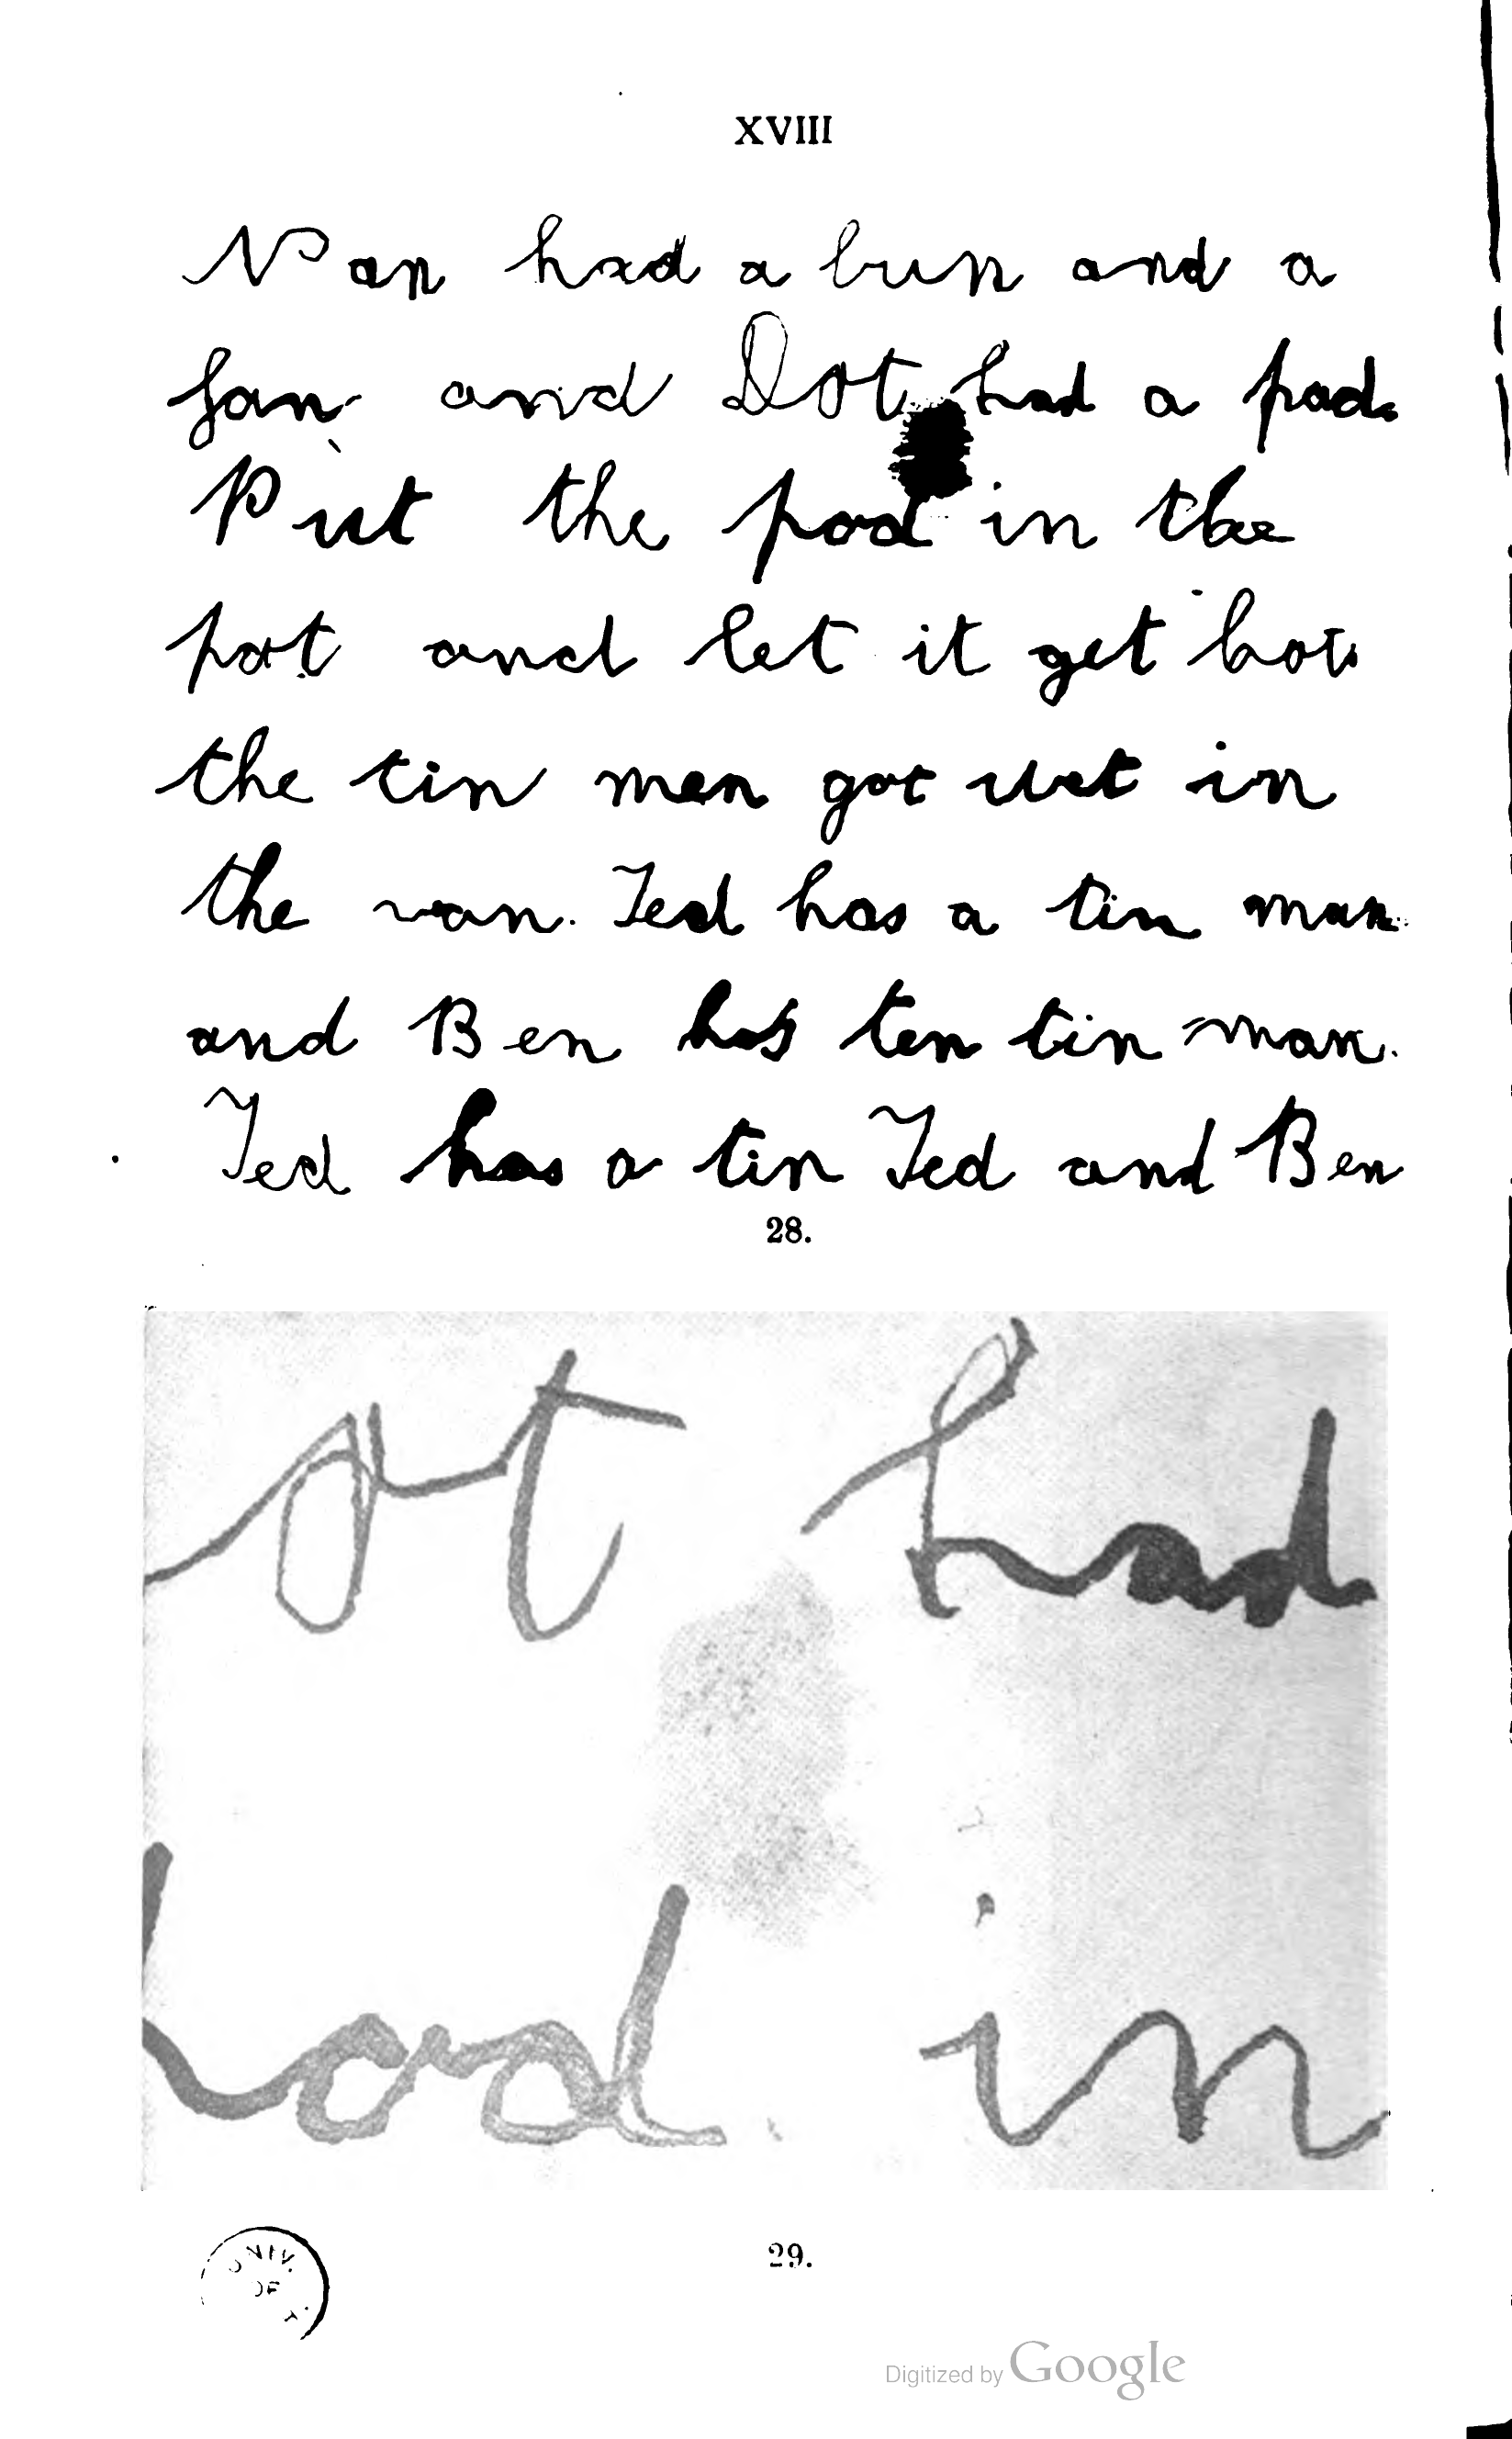 XVIII
Nan had a bun and a
fan and Dot had a pad.
Put the pod in the
pot and let it get hot
the tin men got wet in
the van. Ted has a tin man
and Ben has ten tin man.
Ted has a tin Ted and Ben
28.
ot had
od in
29.
UNIV.
OF
Digitized by Google